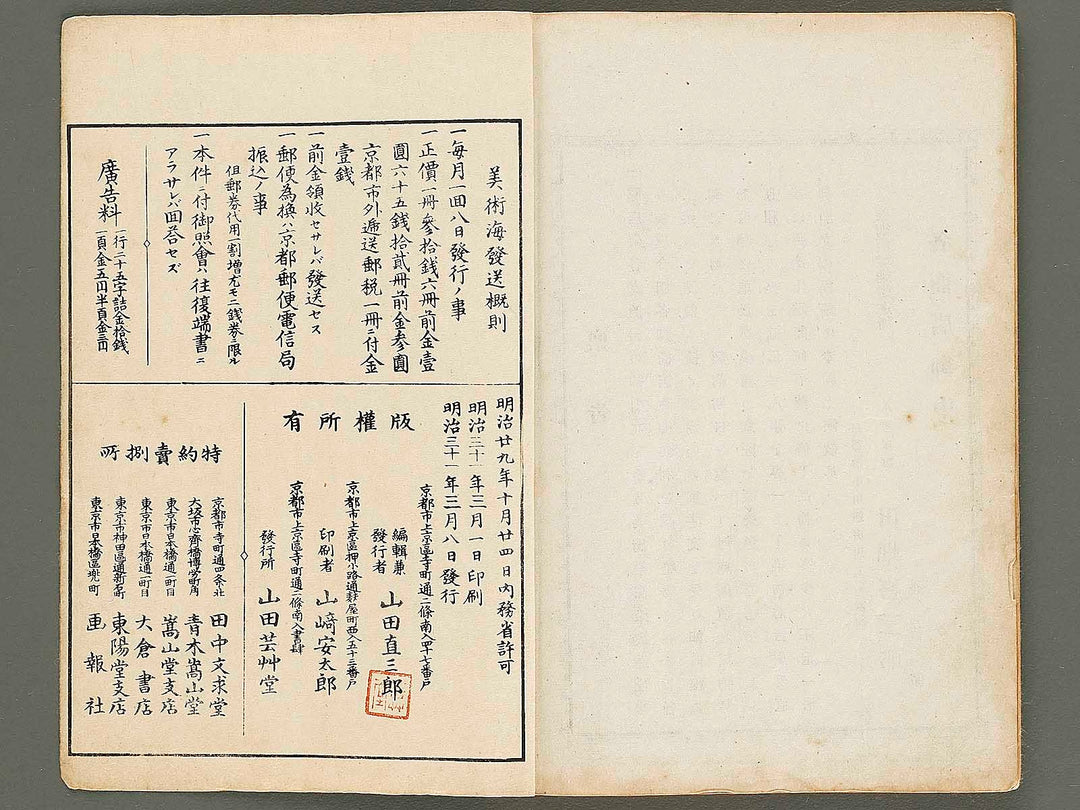 美術海發送概則
一每月一回八日發行ノ事
一正價一冊參拾錢六冊前金壹
圓六十五錢拾貳冊前金参圓
京都市外遞送郵税一冊ニ付金
壹錢
一前金領收セサレバ發送セス
一郵便為換ハ京都郵便電信局
振込ノ事
但郵券代用一割増尤モ二錢券ニ限ル
一本件ニ付御照會ハ往復端書ニ
アラサレバ回荅セズ
廣告料
一行二十五字詰金拾錢
一頁金五円半頁金三円
明治廿九年十月廿四日内務省許可
明治三十一年三月一日印刷
明治三十一年三月八日發行
版權所有
京都市上京區寺町通二條南入四十七番戸
編輯兼
發行者
山田直三郎
京都市上京區押小路通麸屋町西入五十三番戸
印刷者 山﨑安太郎
京都市上京區寺町通二條南入書肆
發行所 山田芸艸堂
特約賣捌所
京都市寺町通四条北 田中文求堂
大坂市心齊橋博勞町角 青木嵩山堂
東京市日本橋通一町目 嵩山堂支店
東京市日本橋通一町目 大倉書店
東京市神田區通新石町 東陽堂支店
東京市日本橋區兜町 画報社